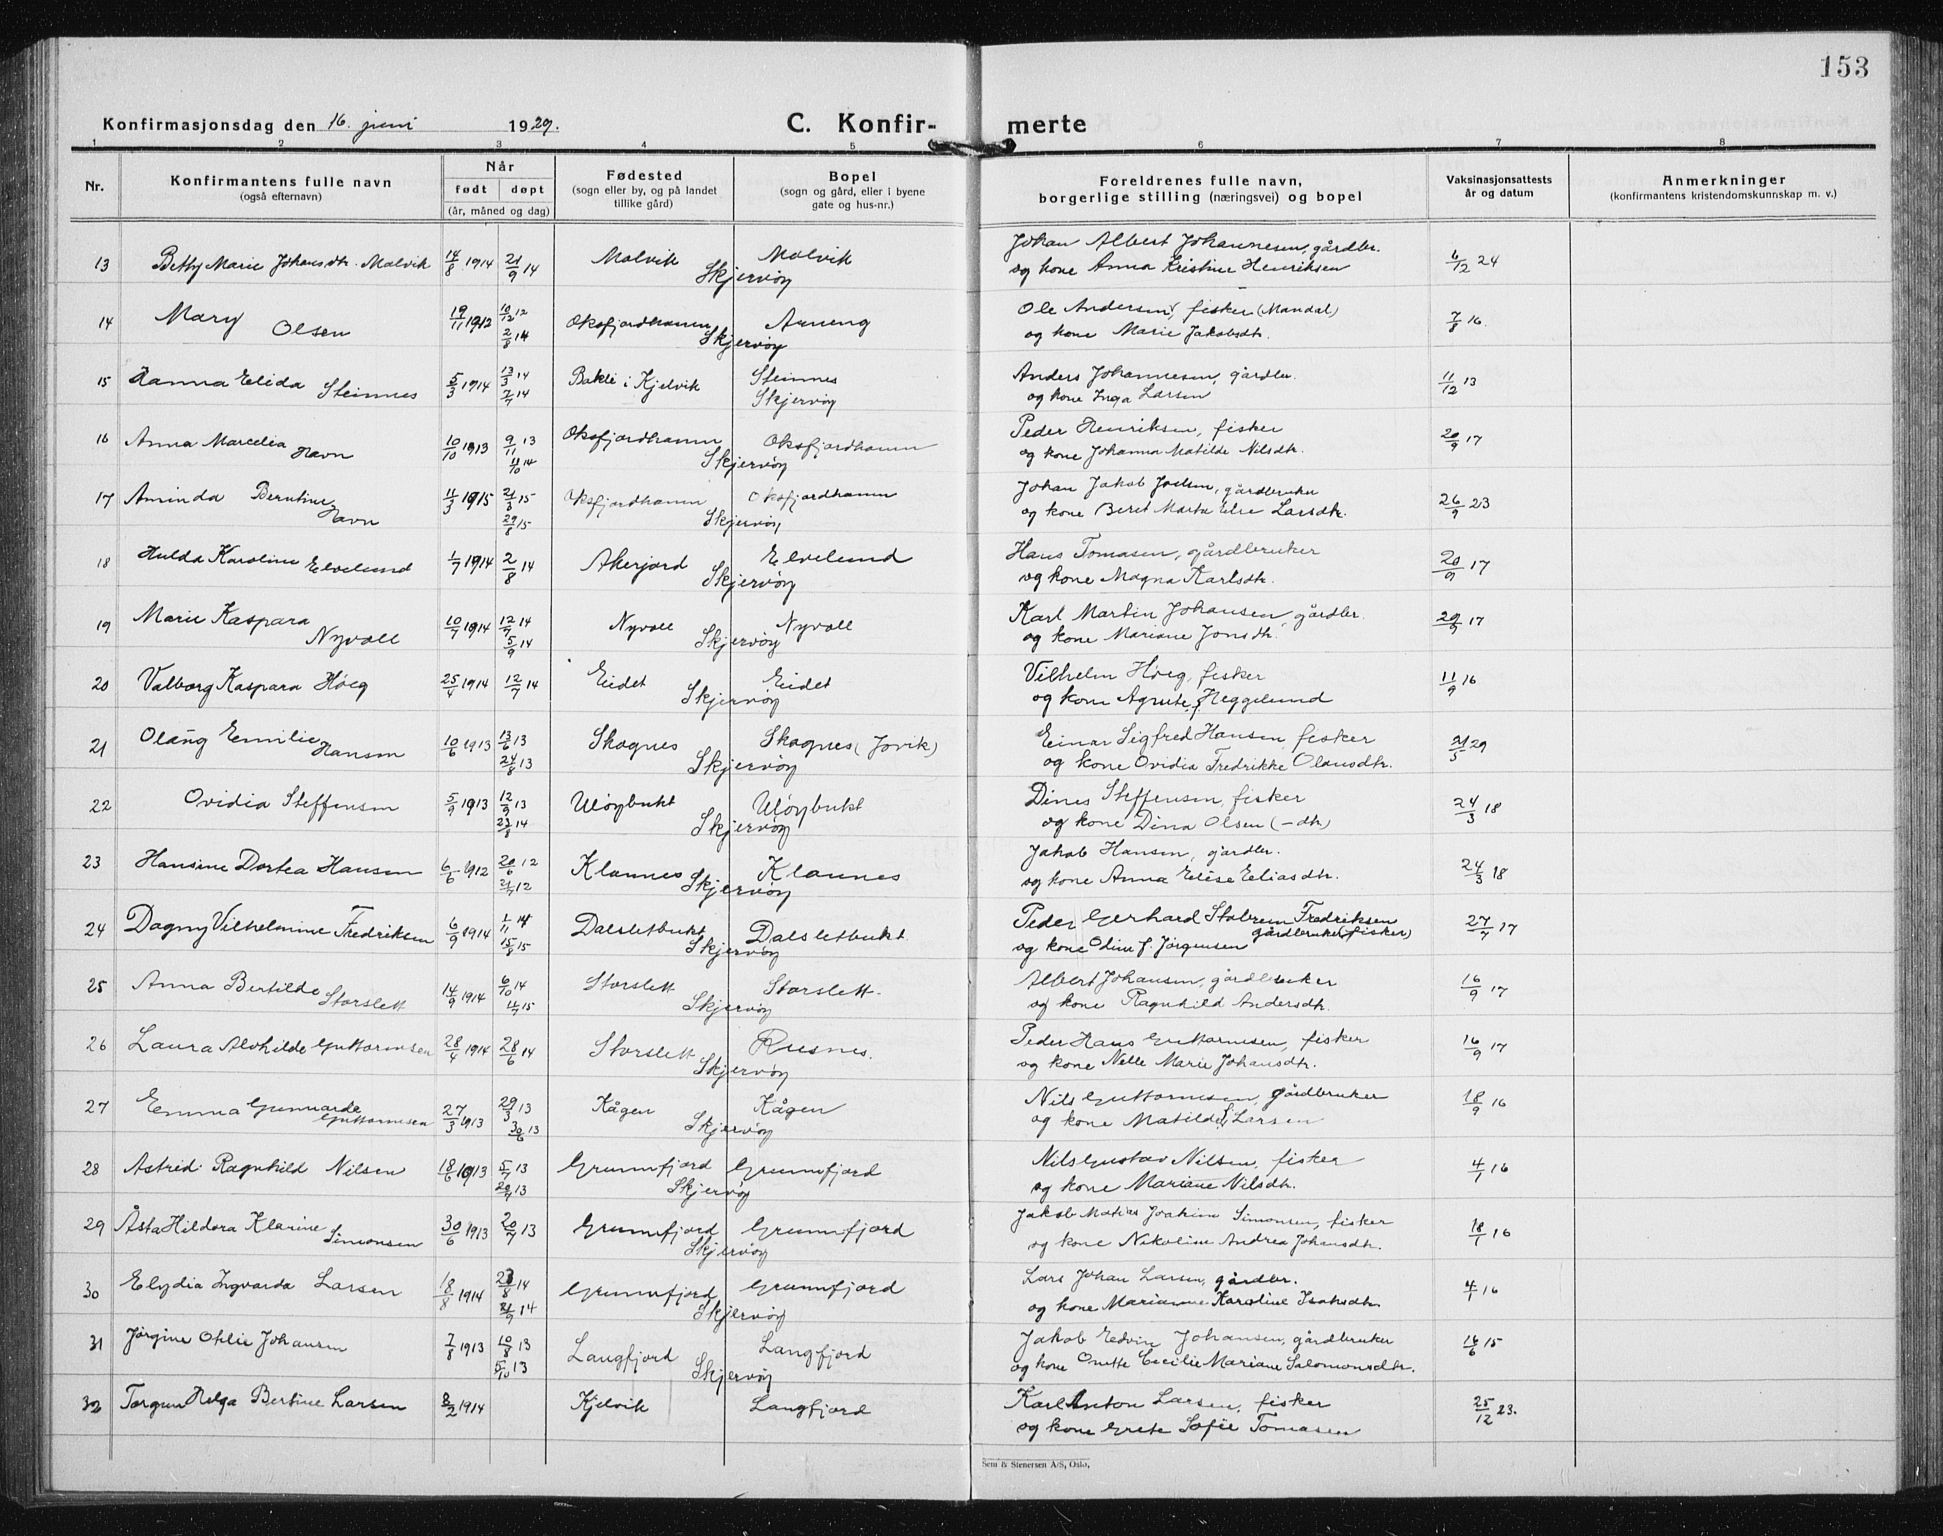 153
Konfirmasjonsdag den 16. juni 1929. C. Konfir- merte
1 2 3 4 5 6 7 8
Nr. Konfirmantens fulle navn (også efternavn) Når født døpt (år, måned og dag) Fødested (sogn eller by, og på landet tillike gård) Bopel (sogn og gård, eller i byene gate og hus-nr.) Foreldrenes fulle navn, borgerlige stilling (næringsvei) og bopel Vaksinasjonsattests år og datum Anmerkninger (konfirmantens kristendomskunnskap m. v.)
13 Betty Marie Johansdtr. Malvik 14/8 1914 21/9 14 Malvik Malvik Skjervöy Johan Albert Johannesen, gårdbr. 6/12 24
og kone Anna Kristine Henriksen
14 Mary Olsen 19/11 1912 10/12 12 2/8 14 Oksfjordhamn Arneng Skjervöy Ole Andersen, fisker (Mandal) 7/8 16.
og kone Marie Jakobsdtr.
15 Hanna Elida Steinnes 5/3 1914 13/3 14 2/7 14 Bakli i Kjelvik Steinnes Skjervöy Anders Johannesen, gårdbr. 11/12 13
og kone Inga Larsen
16 Anna Marcelia Havn 10/10 1913 9/11 13 11/10 14 Oksfjordhamn Oksfjordhamn Skjervöy Peder Henriksen, fisker 20/9 17
og kone Johanna Matilde Nilsdtr.
17 Aminda Berntine Havn 11/3 1915 21/3 15 29/8 15 Oksfjordhamn Oksfjordhamn Skjervöy Johan Jakob Joelsen, gårdbruker 26/9 23
og kone Beret Marta Elre Larsdtr.
18 Hulda Karoline Elvelund 1/7 1914 2/8 14 Akerjord Elvelund Skjervöy Hans Tomasen, gårdbruker 20/9 17
og kone Magna Karlsdtr.
19 Marie Kaspara Nyvoll 10/7 1914 12/7 14 5/9 14 Nyvoll Nyvoll Skjervöy Karl Martin Johansen, gårdbr. 20/9 17
og kone Mariane Jonsdtr.
20 Valborg Kaspara Höeg 25/4 1914 12/7 14 Eidet Eidet Skjervöy Vilhelm Höeg, fisker 11/9 16
og kone Agnete, f. Heggelund
21 Olaug Emilie Hansen 10/6 1913 13/6 13 24/8 13 Skognes Skognes (Jovik) Skjervöy Einar Sigfred Hansen, fisker 21/5 29
og kone Ovidia Fredrikke Olausdtr.
22 Ovidia Steffensen 5/9 1913 12/9 13 23/8 14 Ulöybukt Ulöybukt Skjervöy Dines Steffensen, fisker 24/3 18
og kone Dina Olsen (-dtr)
23 Hansine Dortea Hansen 6/6 1912 20/6 12 21/7 12 Klaunes Klaunes Skjervöy Jakob Hansen, gårdbr. 24/3 18
og kone Anna Elise Eliasdtr.
24 Dagny Vilhelmine Fredriksen 6/9 1914 1/11 14 15/8 15 Dalsletbukt Dalsletbukt Skjervöy Peder Gerhard Fredriksen gårdbruker (fisker) 27/7 17
og kone Odine f. Jörgensen
25 Anna Bertilde Storslett 14/9 1914 6/10 14 4/7 15 Storslett Storslett. Skjervöy Albert Johansen, gårdbruker 16/9 17
og kone Ragnhild Andersdtr.
26 Laura Alvhilde Guttormsen 28/4 1914 28/6 14 Storslett Rusnes. Skjervöy Peder Hans Guttormsen, fisker 16/9 17
og kone Nelle Marie Johansdtr.
27 Emma Gunvarde Guttormsen 27/3 1913 29/3 13 30/6 13 Kågen Kågen Skjervöy Nils Guttormsen, gårdbruker 18/9 16
og kone Matilde f. Larsen
28 Astrid Ragnhild Nilsen 18/6 1913 5/7 13 20/7 13 Grunnfjord Grunnfjord Skjervöy Nils Gustav Nilsen, fisker 4/1 16
og kone Mariane Nilsdtr.
29 Åsta Hildora Klarine Simonsen 30/6 1913 20/7 13 Grunnfjord Grunnfjord Skjervöy Jakob Matias Joakim Simonsen, fisker 18/1 16
og kone Nikoline Andrea Johansdtr.
30 Elydia Ingvarda Larsen 18/8 1914 23/8 14 21/9 14 Grunnfjord Grunnfjord Skjervöy Lars Johan Larsen, gårdbr. 4/1 16
og kone Marianne Karoline Isaksdtr.
31 Jörgine Otilie Johansen 7/8 1913 10/8 13 5/10 13 Langfjord Langfjord Skjervöy Jakob Edvin Johansen, gårdbruker 16/6 15
og kone Onette Cecilie Mariane Salomonsdtr.
32 Torgun Helga Bertine Larsen 8/2 1914 Kjelvik Langfjord Karl Anton Larsen, fisker 25/12 23.
og kone Grete Sofie Tomasen
Sem & Stenersen A/S, Oslo.